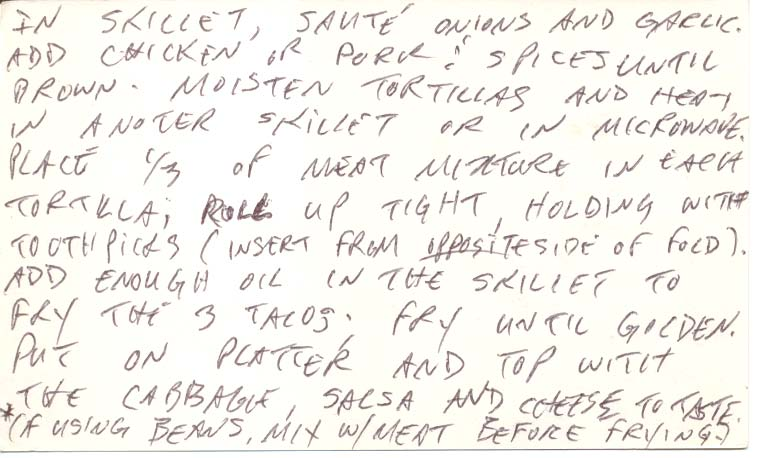 IN SKILLET, SAUTÉ ONIONS AND GARLIC.
ADD CHICKEN OR PORK & SPICES UNTIL
BROWN. MOISTEN TORTILLAS AND HEAT
IN ANOTER SKILLET OR IN MICROWAVE.
PLACE 1/3 OF MEAT MIXTURE IN EACH
TORTILLA; ROLL UP TIGHT, HOLDING WITH
TOOTHPICKS (INSERT FROM OPPOSITE SIDE OF FOLD).
ADD ENOUGH OIL IN THE SKILLET TO
FRY THE 3 TACOS. FRY UNTIL GOLDEN.
PUT ON PLATTER AND TOP WITH
THE CABBAGE, SALSA AND CHEESE TO TASTE.
*(IF USING BEANS, MIX W/MEAT BEFORE FRYING.)